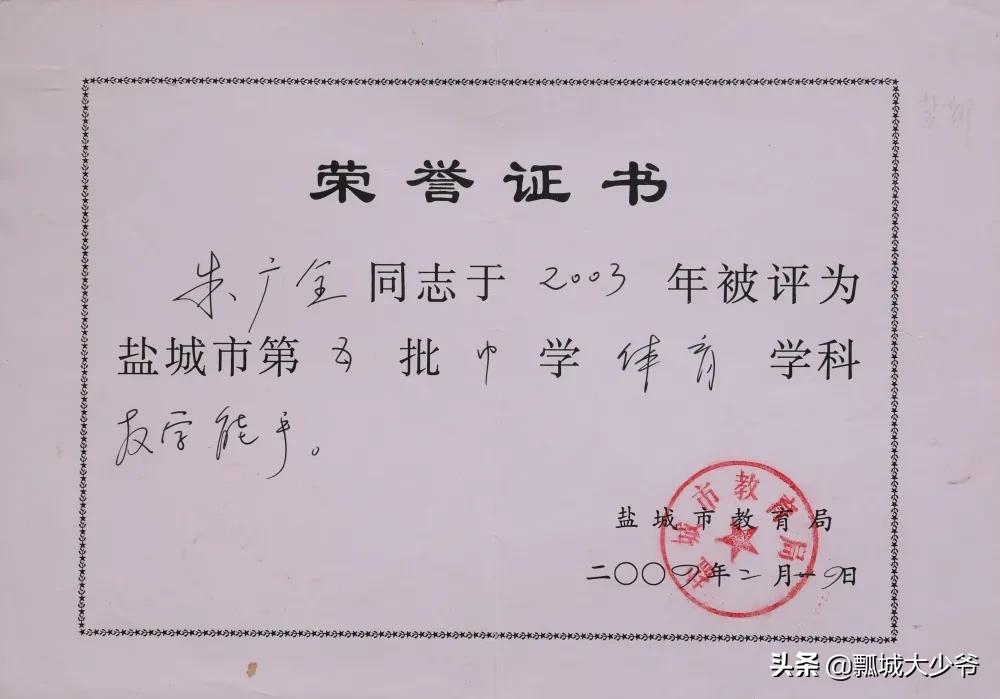 荣誉证书
朱广全同志于2003年被评为
盐城市第五批中学体育学科
教学能手。
盐城市教育局
二〇〇 年二月 日
盐城市教育局
头条 @瓢城大少爷